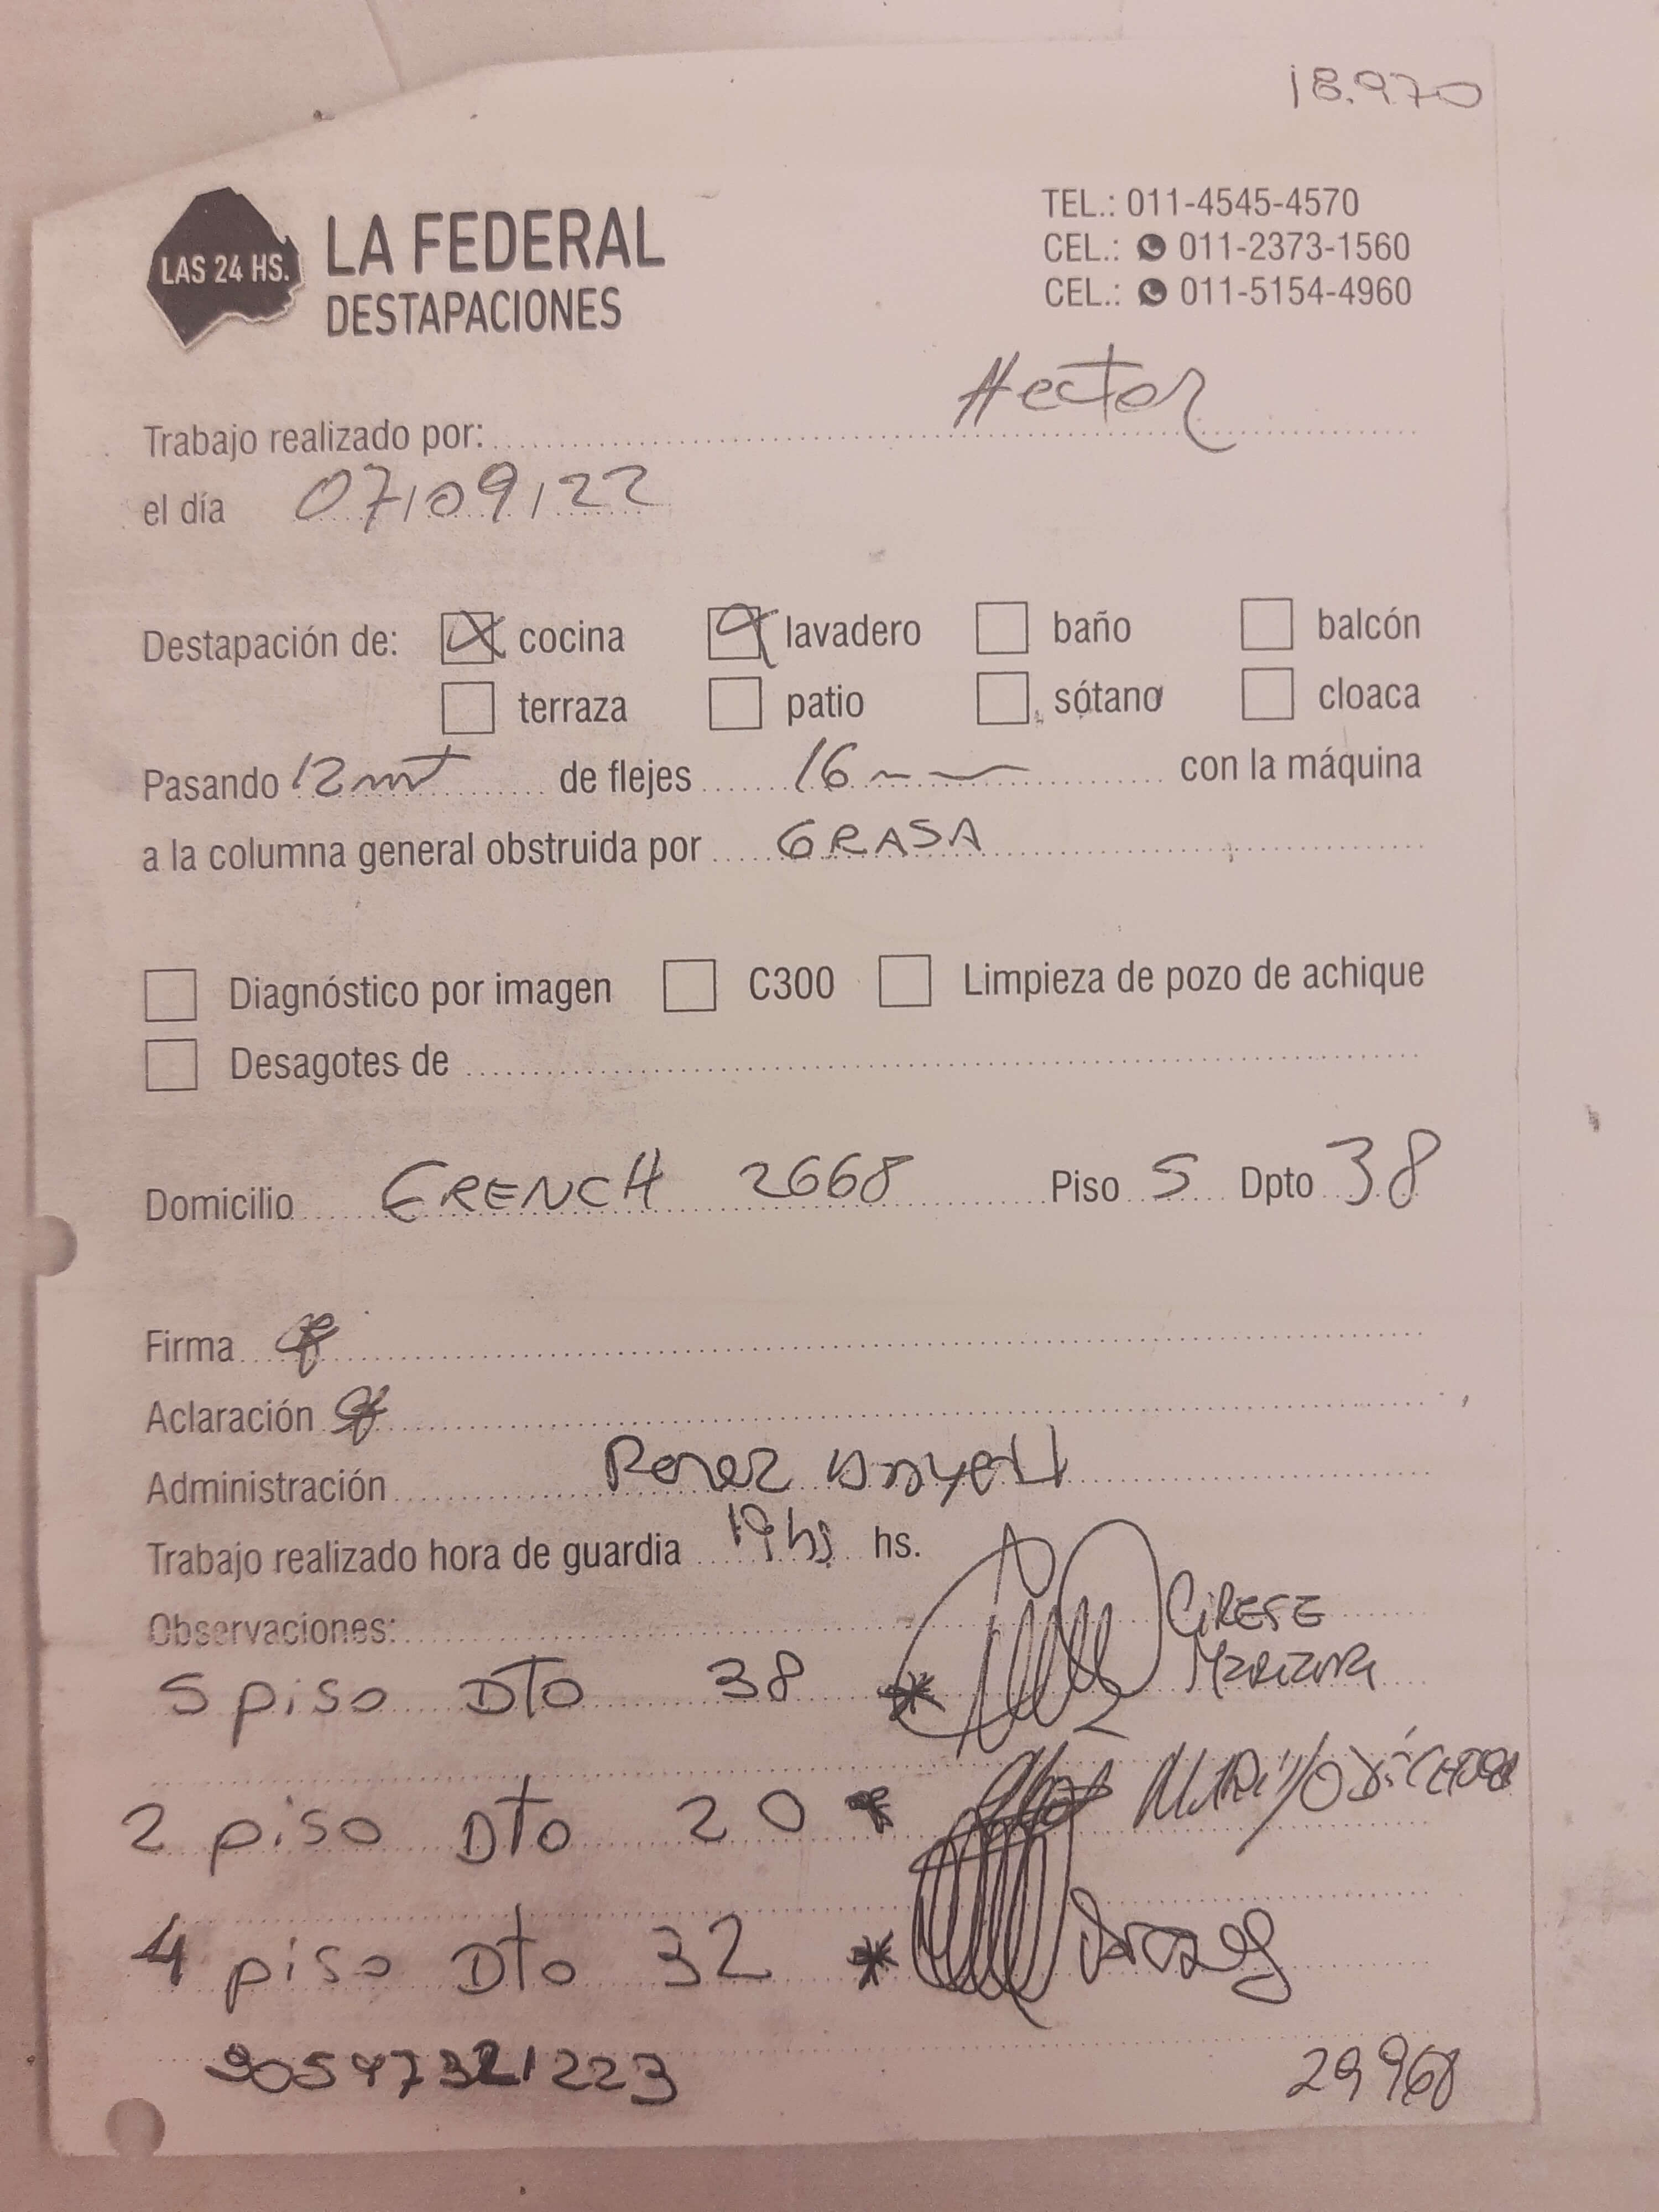 18.970
LAS 24 HS.
LA FEDERAL
DESTAPACIONES
TEL.: 011-4545-4570
CEL.: 011-2373-1560
CEL.: 011-5154-4960
Trabajo realizado por: Hector
el día 07/09/22
Destapación de: cocina lavadero baño balcón
terraza patio sótano cloaca
Pasando 12 mt de flejes 16 con la máquina
a la columna general obstruida por GRASA
Diagnóstico por imagen C300 Limpieza de pozo de achique
Desagotes de
Domicilio FRENCH 2668 Piso 5 Dpto 38
Firma
Aclaración
Administración Perez
Trabajo realizado hora de guardia 19 hs hs.
Observaciones:
CIRESE
5 piso Dto 38 *
2 piso Dto 20 *
4 piso Dto 32 *
29968